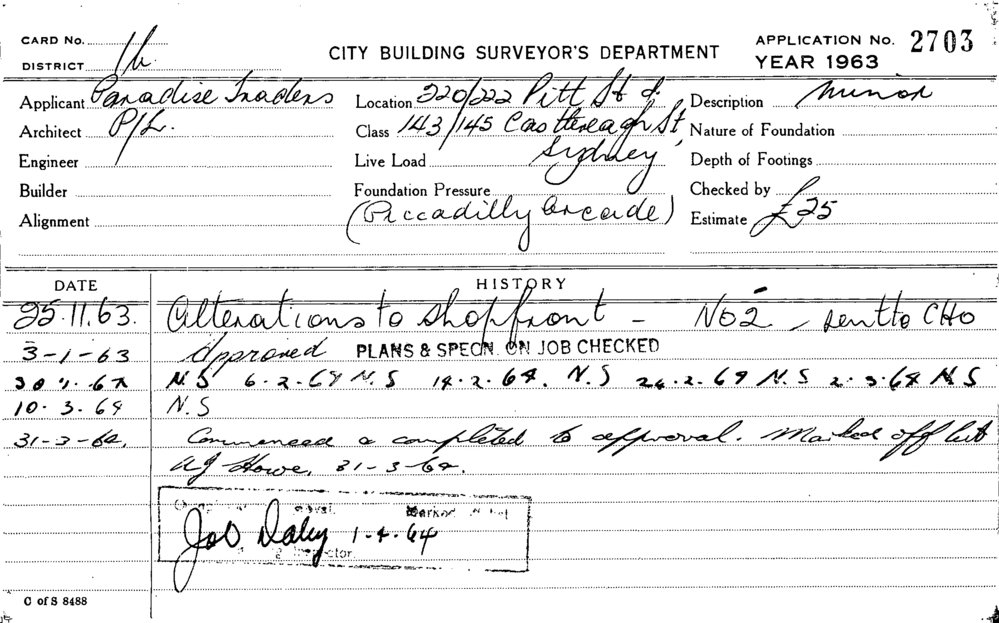 CARD No. 1h.
DISTRICT
CITY BUILDING SURVEYOR'S DEPARTMENT
APPLICATION No. 2703
YEAR 1963
Applicant Paradise Traders
Architect P/L.
Engineer
Builder
Alignment
Location 220/222 Pitt St &
Class 143/145 Castlereagh St,
Live Load Sydney
Foundation Pressure
(Piccadilly Arcade)
Description Minor
Nature of Foundation
Depth of Footings
Checked by
Estimate £25
DATE HISTORY
25.11.63. Alterations to shopfront - No2 - sent to CHO
3-1-63 Approved PLANS & SPECN. ON JOB CHECKED
30.1.64 N.S 6.2.64 N.S 14.2.64. N.S 24.2.64 N.S 2.3.64 N.S
10.3.64 N.S
31-3-64. Commenced & completed to approval. Marked off list
AJ Howe. 31-3-64.
Marked
Daley 1-4-64
C of S 8488